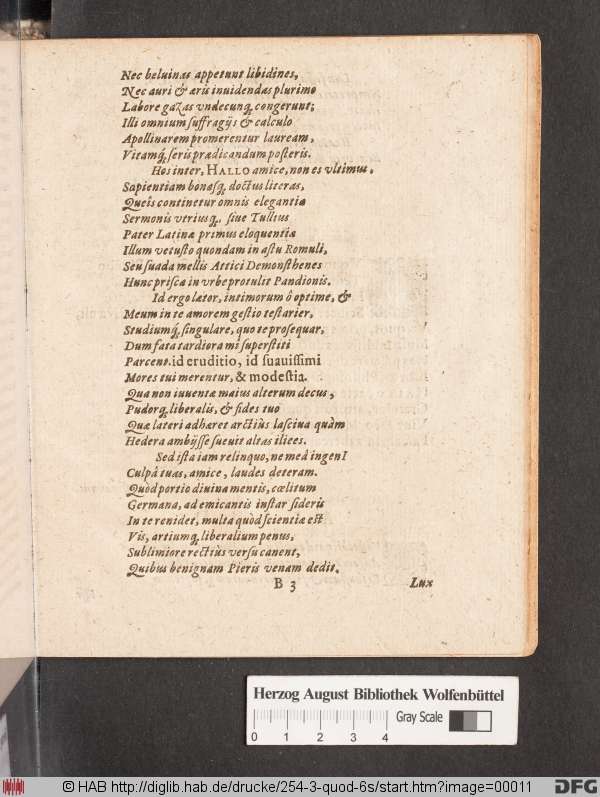 Nec beluinas appetunt libidines,
Nec auri & æris inuidendas plurimo
Labore gazas vndecunq; congerunt;
Illi omnium suffragijs & calculo
Apollinarem promerentur lauream,
Vitamq́; seris prædicandum posteris.
Hos inter, HALLO amice, non es vltimus,
Sapientiam bonasq́; doctus literas,
Queîs continetur omnis elegantia
Sermonis vtriusq;, siue Tullius
Pater Latinæ primus eloquentiæ
Illum vetusto quondam in astu Romuli,
Seu suada mellis Attici Demosthenes
Hunc prisca in vrbe protulit Pandionis.
Id ergo lætor, intimorum ô optime, &
Meum in te amorem gestio testarier,
Studiumq́; singulare, quo te prosequar,
Dum fata tardiora mi superstiti
Parcent. id eruditio, id suauissimi
Mores tui merentur, & modestia.
Qua non iuuentæ maius alterum decus,
Pudorq; liberalis, & fides tuo
Quæ lateri adhæret arctiùs lasciua quàm
Hedera ambijsse sueuit altas ilices.
Sed ista iam relinquo, ne med ingenI
Culpâ tuas, amice, laudes deteram.
Quòd portio diuina mentis, cœlitum
Germana, ad emicantis instar sideris
In te renidet, multa quòd scientiæ est
Vis, artiumq; liberalium penus,
Sublimiore rectiùs versu canent,
Quibus benignam Pieris venam dedit.
B 3 Lux
Herzog August Bibliothek Wolfenbüttel
Gray Scale
0 1 2 3 4
© HAB http://diglib.hab.de/drucke/254-3-quod-6s/start.htm?image=00011
DFG